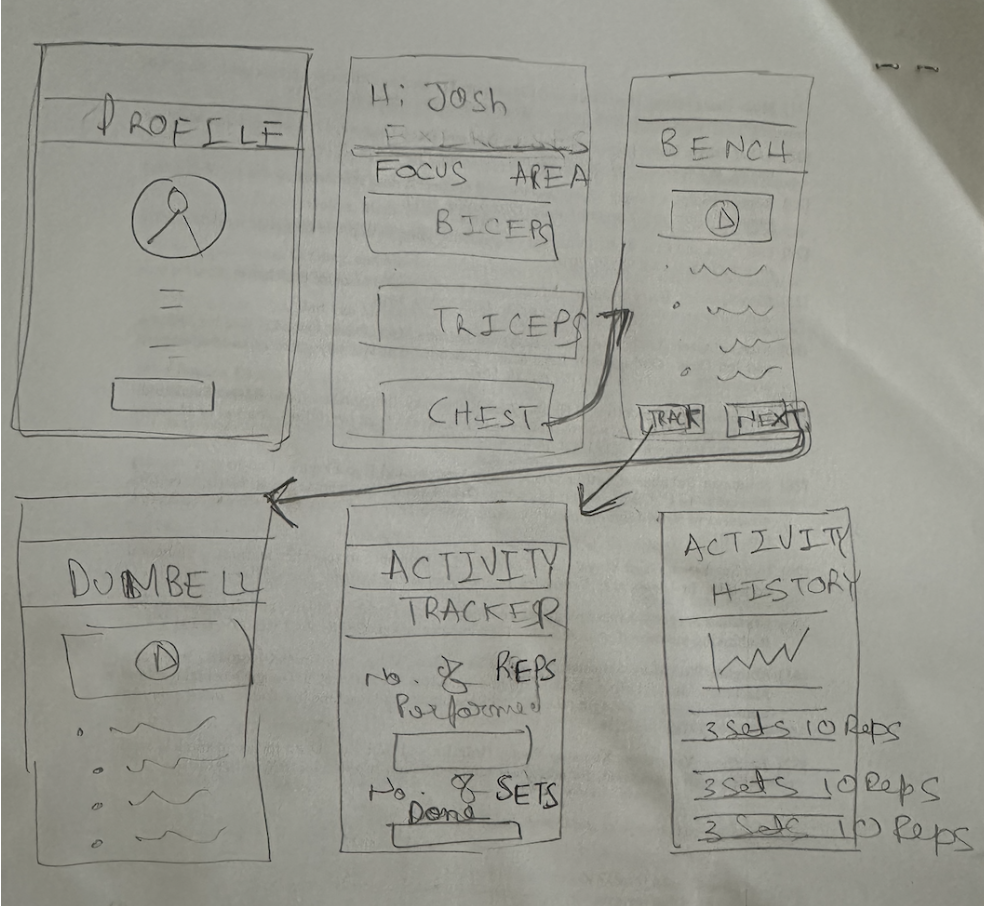 PROFILE
Hi Josh
EXERCISES
FOCUS AREA
BICEPS
TRICEPS
CHEST
BENCH
TRACK
NEXT
DUMBELL
ACTIVITY
TRACKER
No. of REPS
Performed
No. of SETS
Done
ACTIVITY
HISTORY
3 sets 10 Reps
3 sets 10 Reps
3 sets 10 Reps